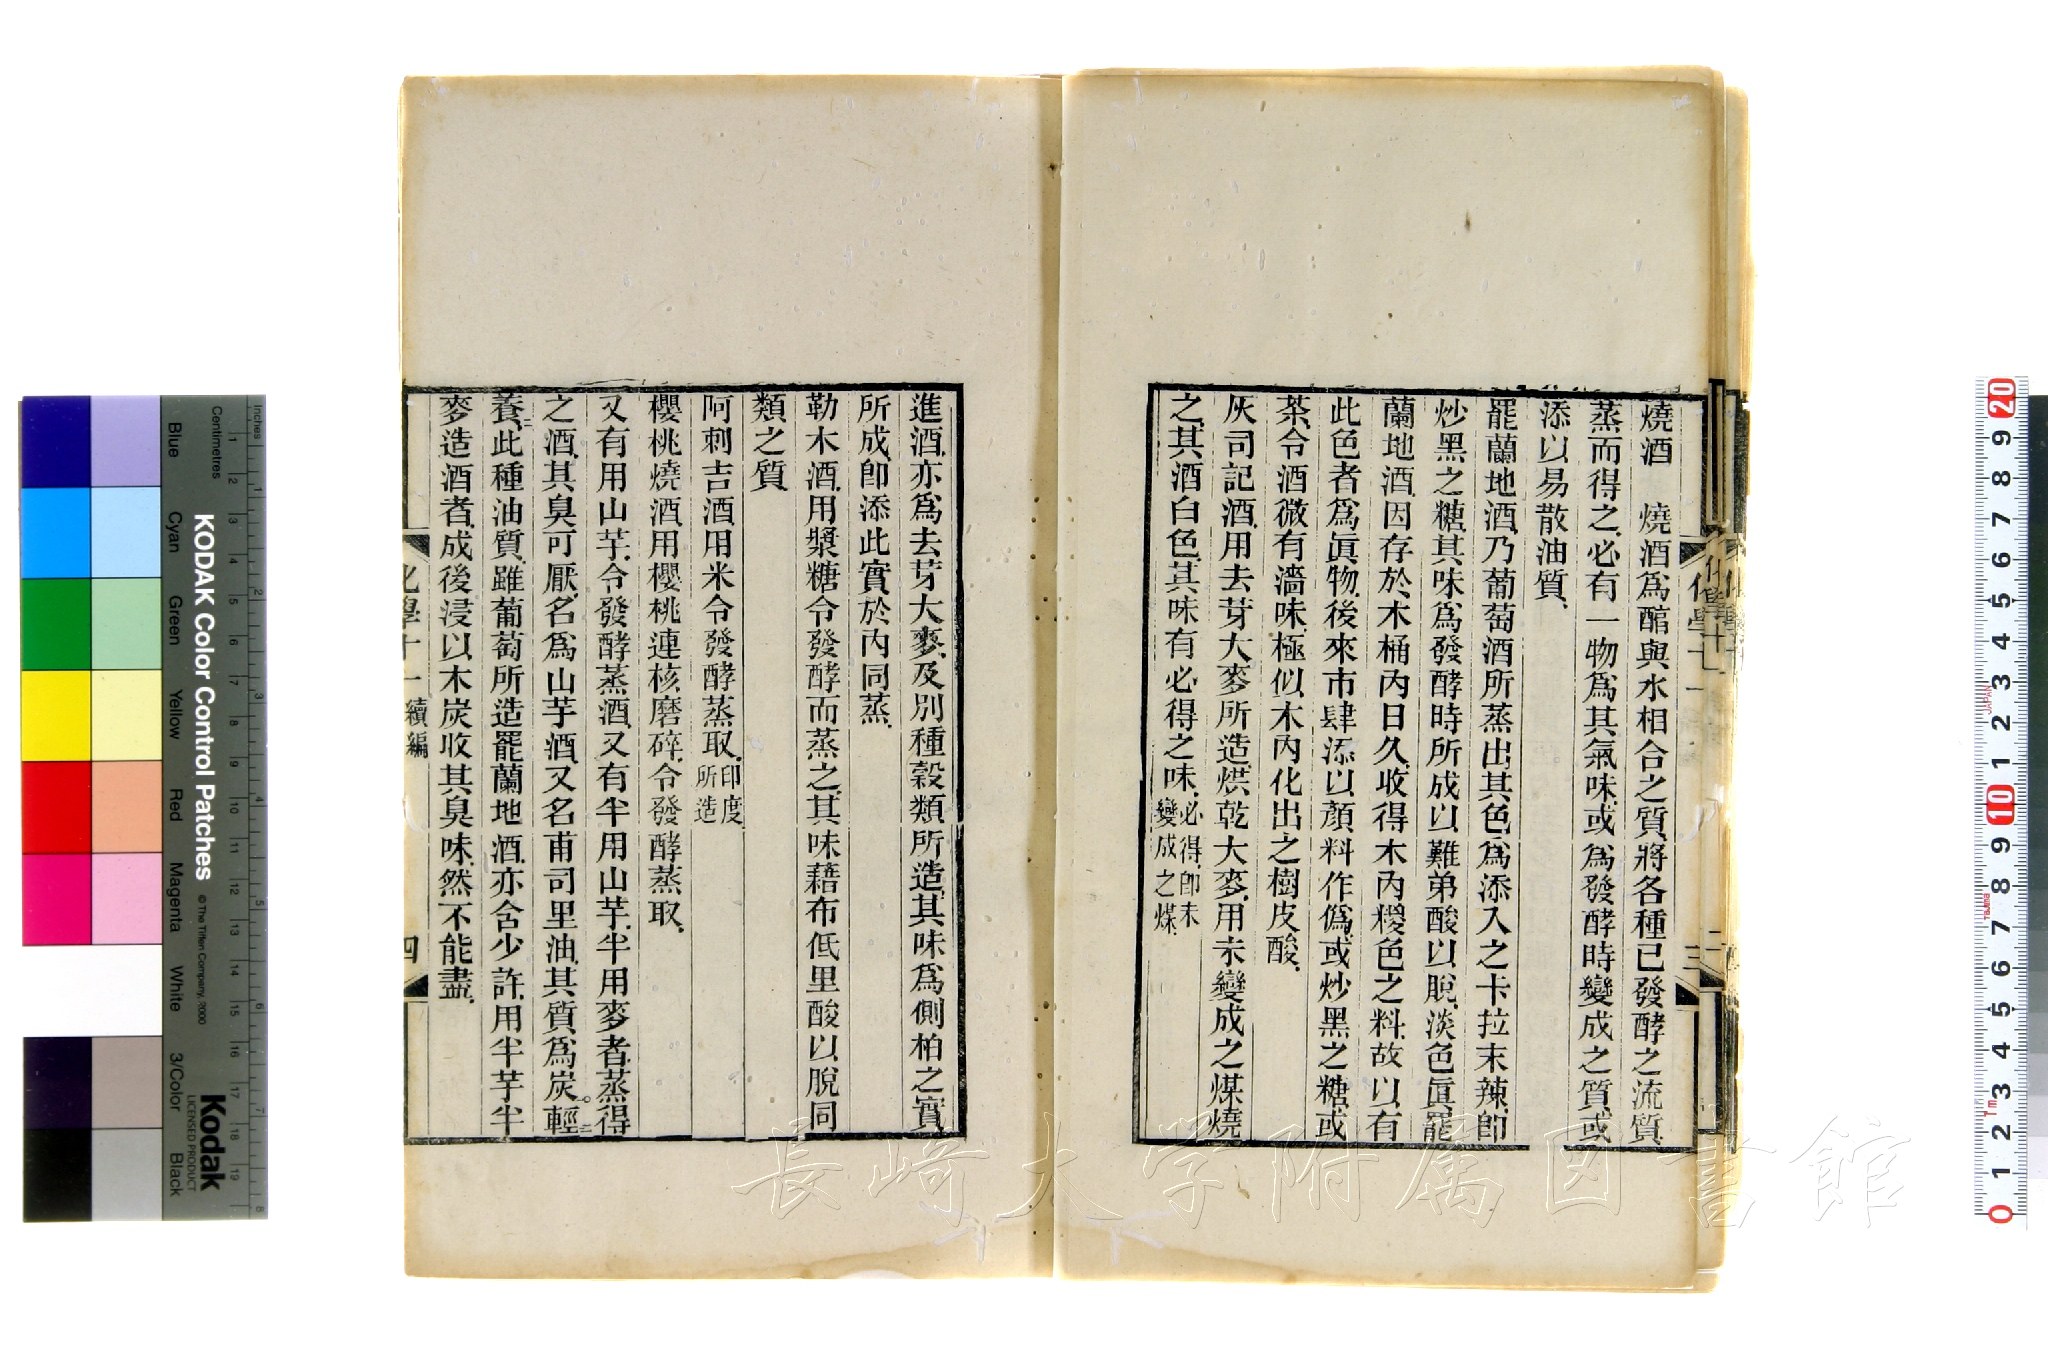 燒酒　燒酒爲醕與水相合之質將各種已發酵之流質
蒸而得之必有一物爲其氣味或爲發酵時變成之質或
添以易散油質
罷蘭地酒乃葡萄酒所蒸出其色爲添入之卡拉末辣卽
炒黑之糖其味爲發酵時所成以難弟酸以脫淡色眞罷
蘭地酒因存於木桶內日久收得木內㯶色之料故以有
此色者爲眞物後來市肆添以顏料作僞或炒黑之糖或
茶令酒微有濇味極似木內化出之樹皮酸
灰司記酒用去芽大麥所造烘乾大麥用未變成之煤燒
之其酒白色其味有必得之味必得卽未變成之煤
化學十一
三
進酒亦爲去芽大麥及別種穀類所造其味爲側柏之實
所成卽添此實於內同蒸
勒木酒用漿糖令發酵而蒸之其味藉布低里酸以脫同
類之質
阿刺吉酒用米令發酵蒸取印度所造
櫻桃燒酒用櫻桃連核磨碎令發酵蒸取
又有用山芋令發酵蒸酒又有半用山芋半用麥者蒸得
之酒其臭可厭名爲山芋酒又名甫司里油其質爲炭輕
養此種油質雖葡萄所造罷蘭地酒亦含少許用半芋半
麥造酒者成後浸以木炭收其臭味然不能盡
化學十一 續編
四
長崎大学附属図書館
KODAK Color Control Patches
© The Tiffen Company, 2000
Kodak
LICENSED PRODUCT
Inches
Centimetres
Blue
Cyan
Green
Yellow
Red
Magenta
White
3/Color
Black